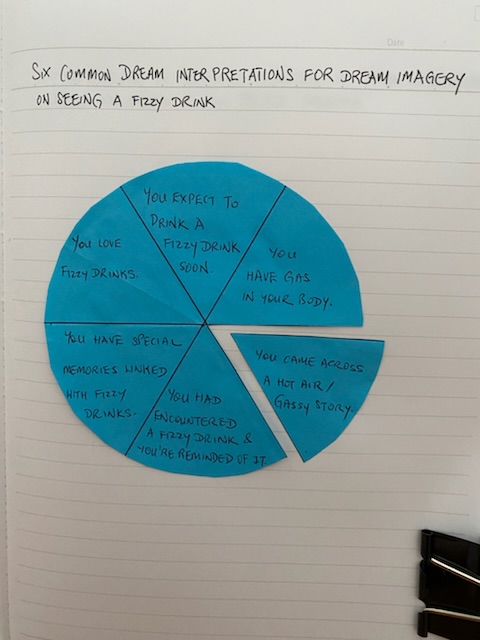 Date
SIX COMMON DREAM INTERPRETATIONS FOR DREAM IMAGERY
ON SEEING A FIZZY DRINK
YOU EXPECT TO
DRINK A
FIZZY DRINK
SOON.
YOU
HAVE GAS
IN YOUR BODY.
YOU CAME ACROSS
A HOT AIR/
GASSY STORY.
YOU HAD
ENCOUNTERED
A FIZZY DRINK &
YOU'RE REMINDED OF IT.
YOU HAVE SPECIAL
MEMORIES LINKED
WITH FIZZY
DRINKS.
YOU LOVE
FIZZY DRINKS.